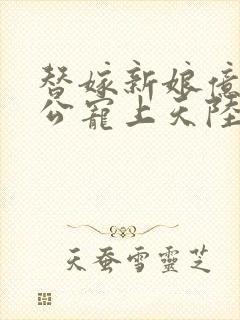 替嫁新娘億
公寵上天陸
天蚕雪靈芝